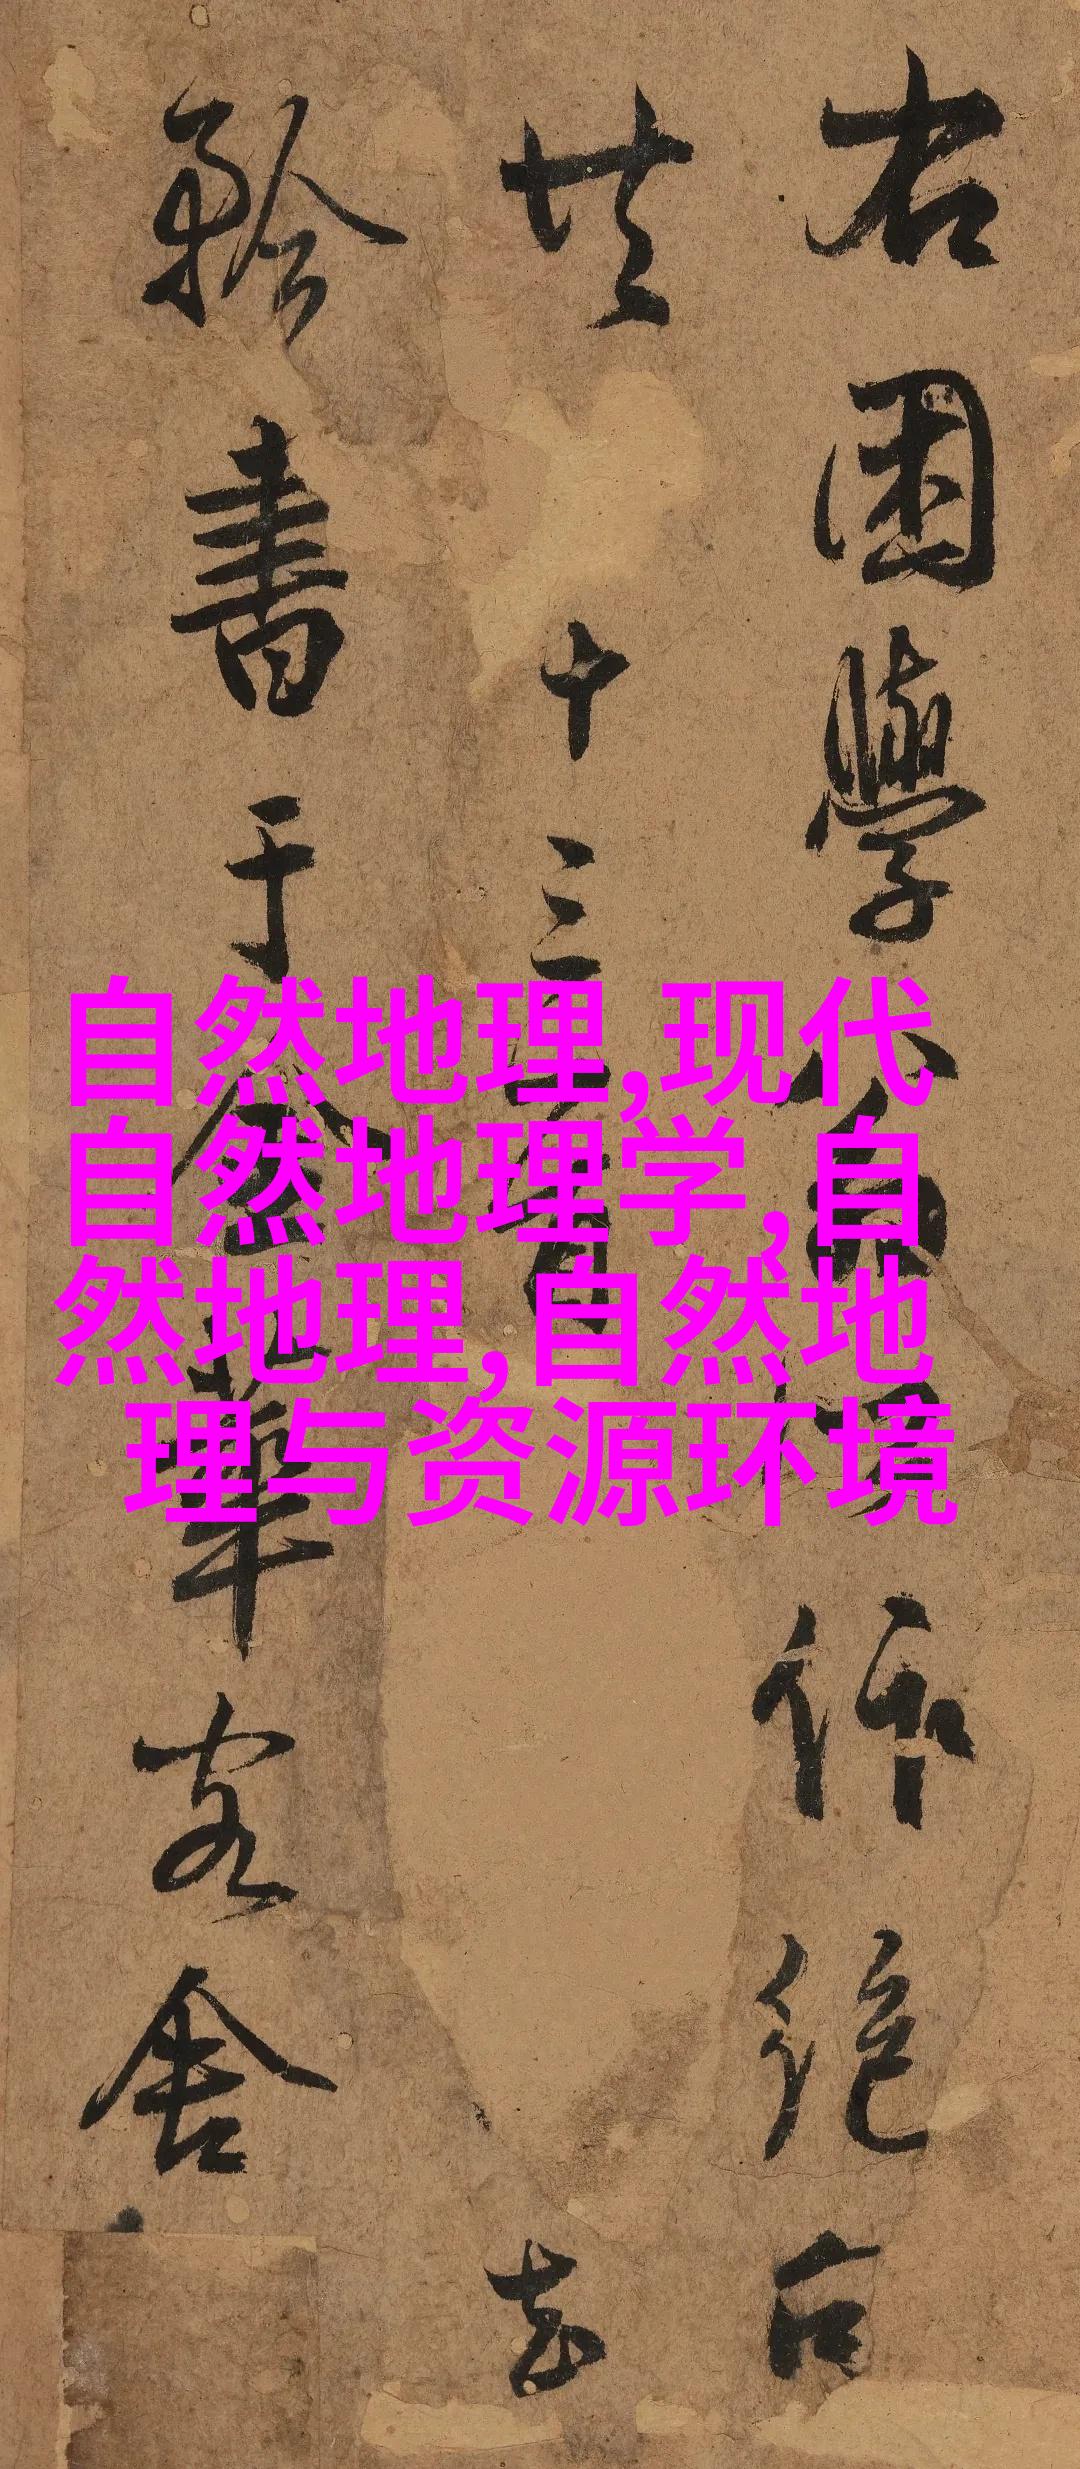 右困學作絕句
共十三首
書于金華客舍
自然地理,现代
自然地理学,自
然地理,自然地
理与资源环境